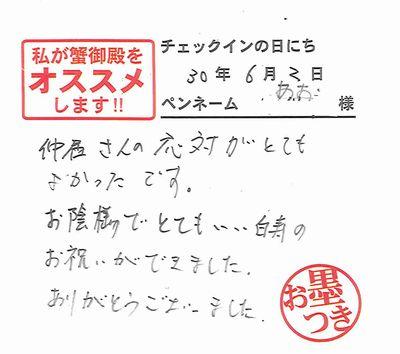 私が蟹御殿を
オススメ
します!!
チェックインの日にち
30年 6月 2日
ペンネーム あお 様
仲居さんの応対がとても
よかったです。
お陰様でとてもいい白寿の
お祝いができました。
ありがとうございました。
お墨つき